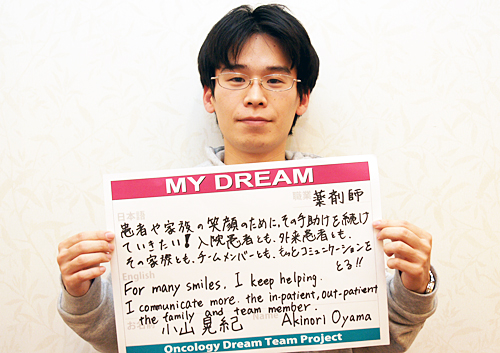 MY DREAM
職業 薬剤師
日本語
患者や家族の笑顔のために、その手助けを続け
ていきたい! 入院患者とも、外来患者とも、
その家族とも、チームメンバーとも、もっとコミュニケーションを
とる!!
English
For many smiles, I keep helping.
I communicate more the in-patient, out-patient
the family and team member.
お名前 小山晃紀 Name Akinori Oyama
Oncology Dream Team Project